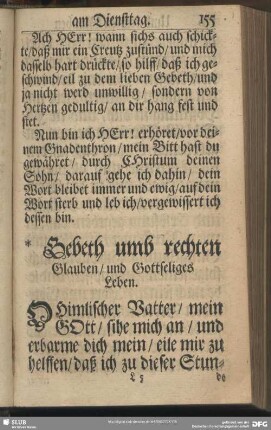 am Dienſttag. 155
Ach HErr! wann ſichs auch ſchick-
te/daß mir ein Creutz zuſtünd/und mich
daſſelb hart drückte/ſo hilff/daß ich ge-
ſchwind/eil zu dem lieben Gebeth/und
ja nicht werd unwillig/ſondern von
Hertzen gedultig/an dir hang feſt und
ſtet.
Nun bin ich HErr! erhöret/vor dei-
nem Gnadenthron/mein Bitt haſt du
gewähret/durch CHriſtum deinen
Sohn/darauf gehe ich dahin/dein
Wort bleibet immer und ewig/auf dein
Wort ſterb und leb ich/vergewiſſert ich
deſſen bin.
* Gebeth umb rechten
Glauben/und Gottſeliges
Leben.
O Himliſcher Vatter/mein
GOtt/ſihe mich an/und
erbarme dich mein/eile mir zu
helffen/daß ich zu dieſer Stun-
de
SLUB
DFG